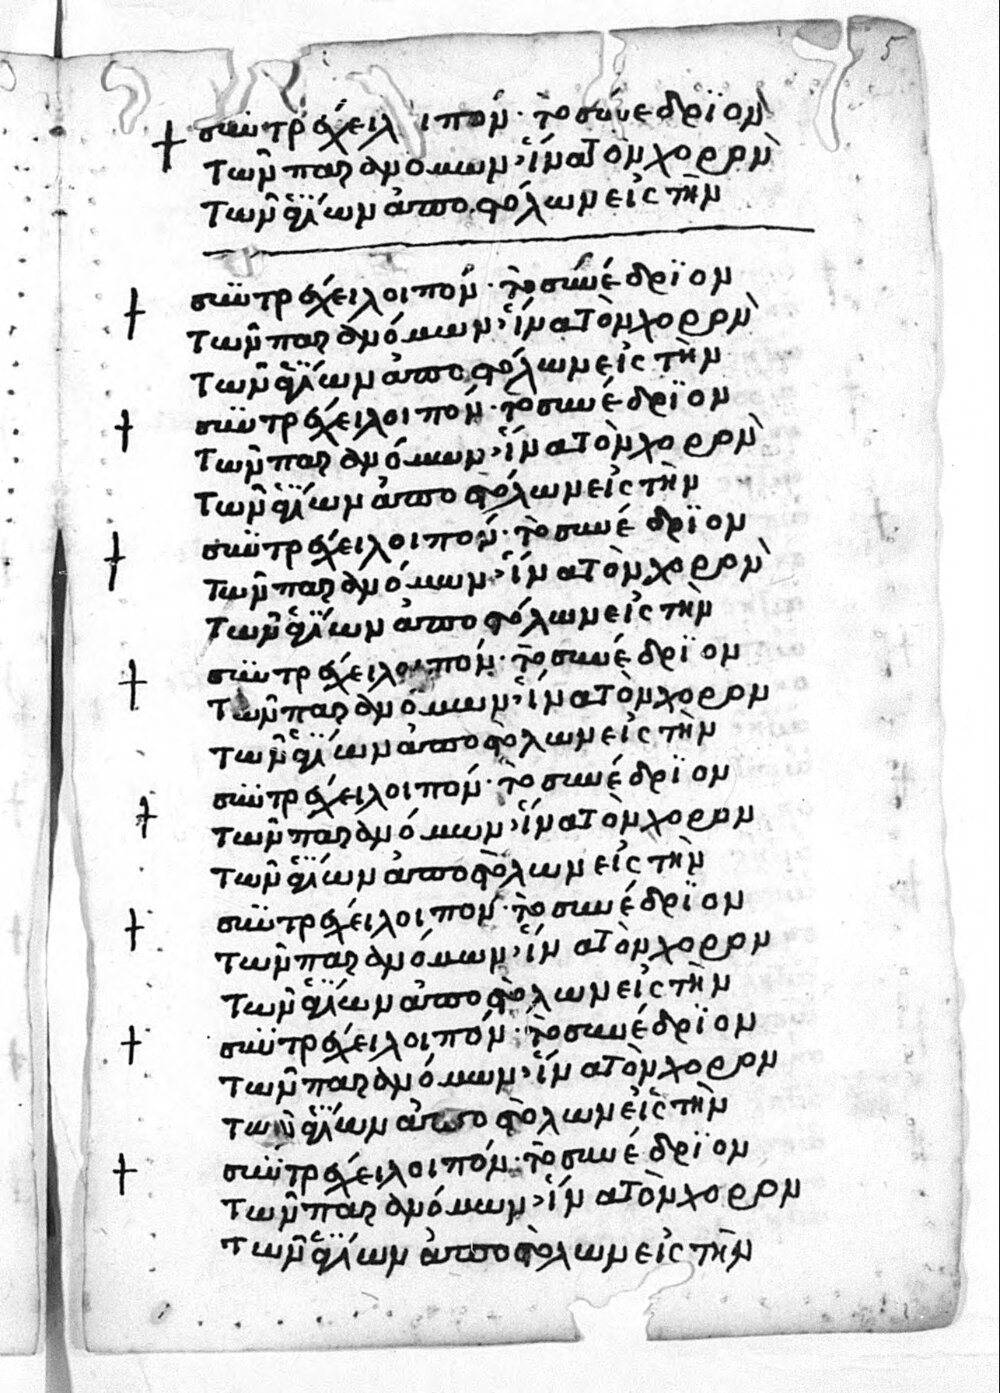 5
† συντρέχει λοιπόν· τὸ συνέδρϊον
τῶν παρανόμων, ἵνα τὸν χορὸν
τῶν ἁγΐων ἀποστόλων εἰς τὴν
† συντρέχει λοιπόν· τὸ συνέδρϊον
τῶν παρανόμων, ἵνα τὸν χορὸν
τῶν ἁγΐων ἀποστόλων εἰς τὴν
† συντρέχει λοιπόν· τὸ συνέδρϊον
τῶν παρανόμων, ἵνα τὸν χορὸν
τῶν ἁγΐων ἀποστόλων εἰς τὴν
† συντρέχει λοιπόν· τὸ συνέδρϊον
τῶν παρανόμων, ἵνα τὸν χορὸν
τῶν ἁγΐων ἀποστόλων εἰς τὴν
† συντρέχει λοιπόν· τὸ συνέδρϊον
τῶν παρανόμων, ἵνα τὸν χορον
τῶν ἁγΐων ἀποστόλων εἰς τὴν
† συντρέχει λοιπόν· τὸ συνέδρϊον
τῶν παρανόμων, ἵνα τὸν χορον
τῶν ἁγΐων ἀποστόλων εἰς τὴν
† συντρέχει λοιπόν· τὸ συνέδρϊον
τῶν παρανόμων, ἵνα τὸν χορον
τῶν ἁγΐων ἀποστόλων εἰς τὴν
† συντρέχει λοιπόν· τὸ συνέδρϊον
τῶν παρανόμων, ἵνα τὸν χορον
τῶν ἁγΐων ἀποστόλων εἰς τὴν
† συντρέχει λοιπόν· τὸ συνέδρϊον
τῶν παρανόμων, ἵνα τὸν χορον
τῶν ἁγΐων ἀποστόλων εἰς τὴν